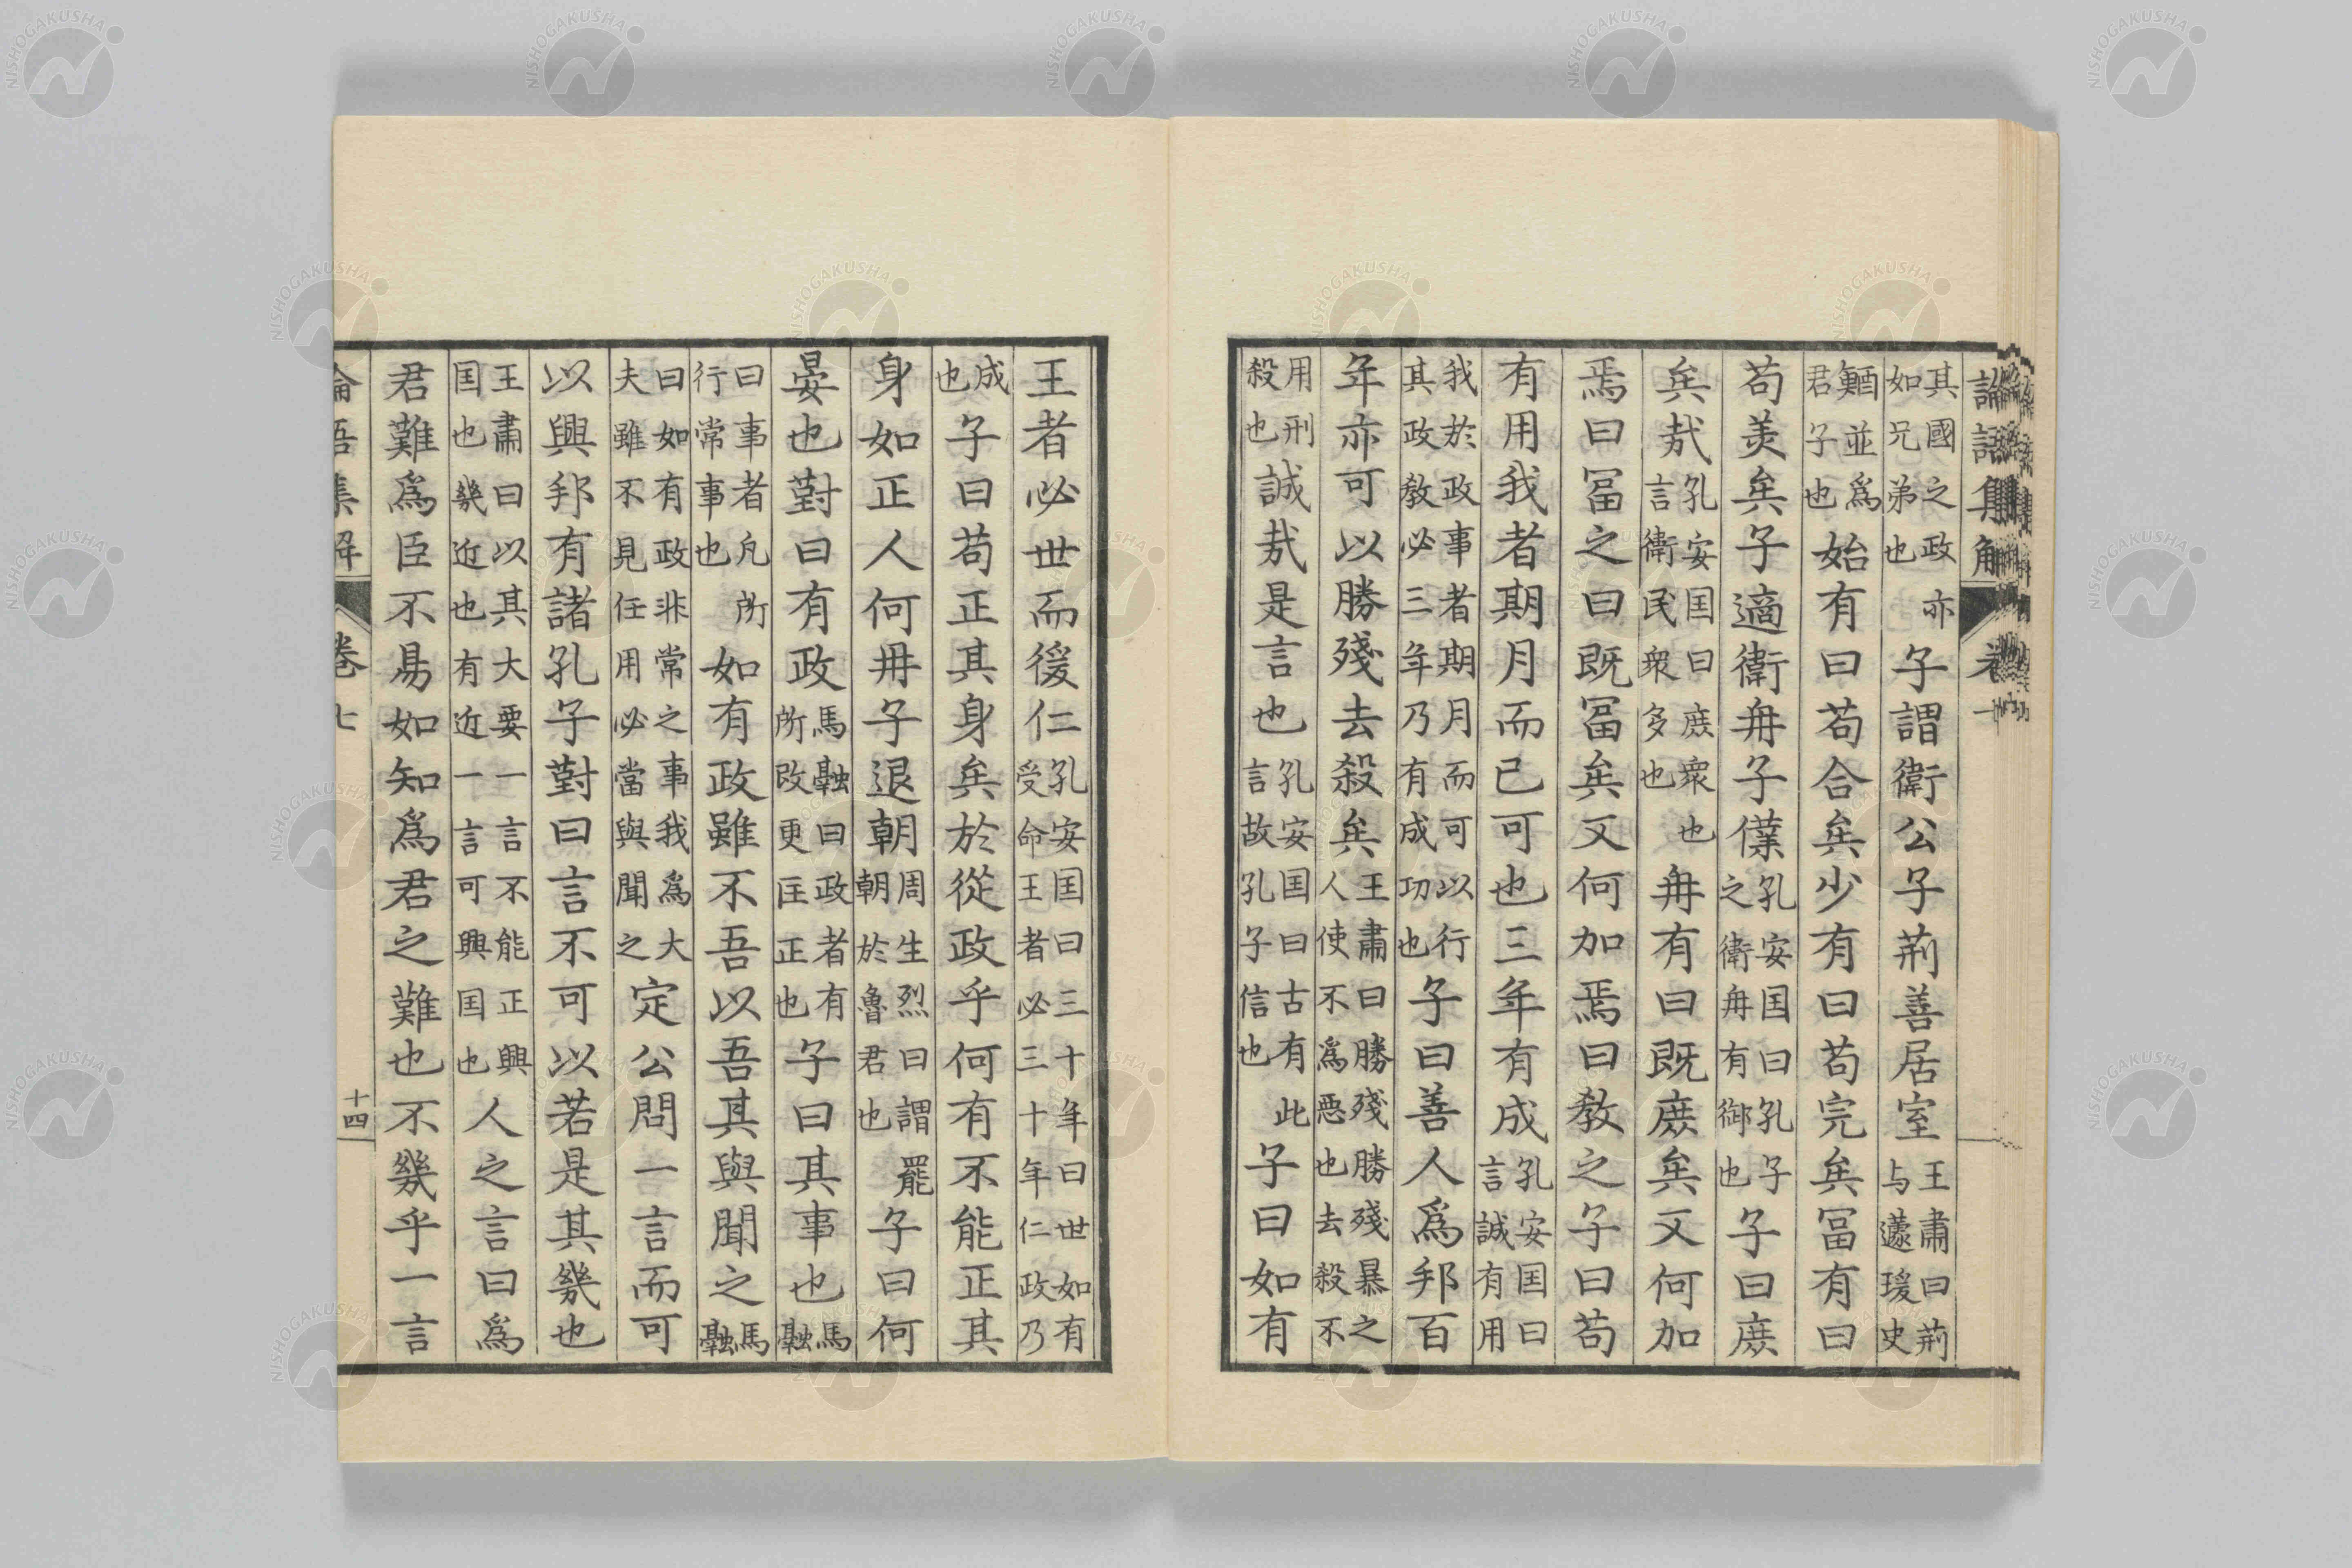 論語集解
其國之政亦如兄弟也子謂衛公子荊善居室王肅曰荊与蘧瑗史
鰌並為君子也始有曰苟合矣少有曰苟完矣冨有曰
苟羙矣子適衛冉子僕孔安国曰孔子之衛冉有御也子曰庶
矣㢤孔安国曰庶衆也言衛民衆多也冉有曰既庶矣又何加
焉曰冨之曰既冨矣又何加焉曰教之子曰苟
有用我者期月而已可也三年有成孔安国曰言誠有用
我於政事者期月而可以行其政教必三年乃有成功也子曰善人爲邦百
年亦可以勝殘去殺矣王肅曰勝殘勝殘暴之人使不爲惡也去殺不
用刑殺也誠㢤是言也孔安国曰古有此言故孔子信也子曰如有
王者必世而後仁孔安国曰三十年曰世如有受命王者必三十年仁政乃
成也子曰苟正其身矣於從政乎何有不能正其
身如正人何冉子退朝周生烈曰謂罷朝於魯君也子曰何
晏也對曰有政馬融曰政者有所改更匡正也子曰其事也馬融
曰事者凡所行常事也如有政雖不吾以吾其與聞之馬融
曰如有政非常之事我為大夫雖不見任用必當與聞之定公問一言而可
以興邦有諸孔子對曰言不可以若是其幾也
王肅曰以其大要一言不能正興国也幾近也有近一言可興国也人之言曰爲
君難爲臣不易如知爲君之難也不幾乎一言
論語集解 卷七 十四
NISHOGAKUSHA